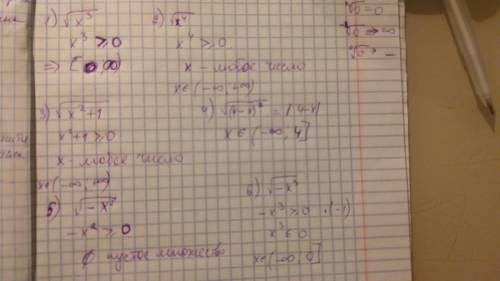 1) √x³
x³ ≥ 0
⇒ [0, ∞)
2) √x⁴
x⁴ ≥ 0
x - любое число
x∈(-∞, +∞)
3) √x²+1
x²+1 ≥ 0
x - любое число
x∈(-∞, ∞)
4) √(4-x)² = |4-x|
x∈(-∞, 4]
5) √-x²
-x² ≥ 0
∅ пустое множество
6) √-x³
-x³ ≥ 0 ·(-1)
x³ ≤ 0
x∈(-∞, 0]